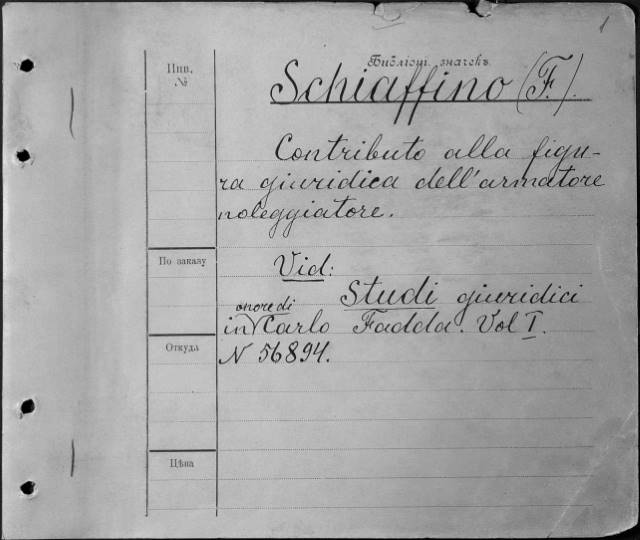 1
Библіогр. значекъ
Инв.
№
Schiaffino (F.).
Contributo alla figu-
ra giuridica dell'armatore
noleggiatore.
По заказу
Vid:
Studi giuridici
onore di
in Carlo Fadda. Vol I.
Откуда
N 56894.
Цѣна